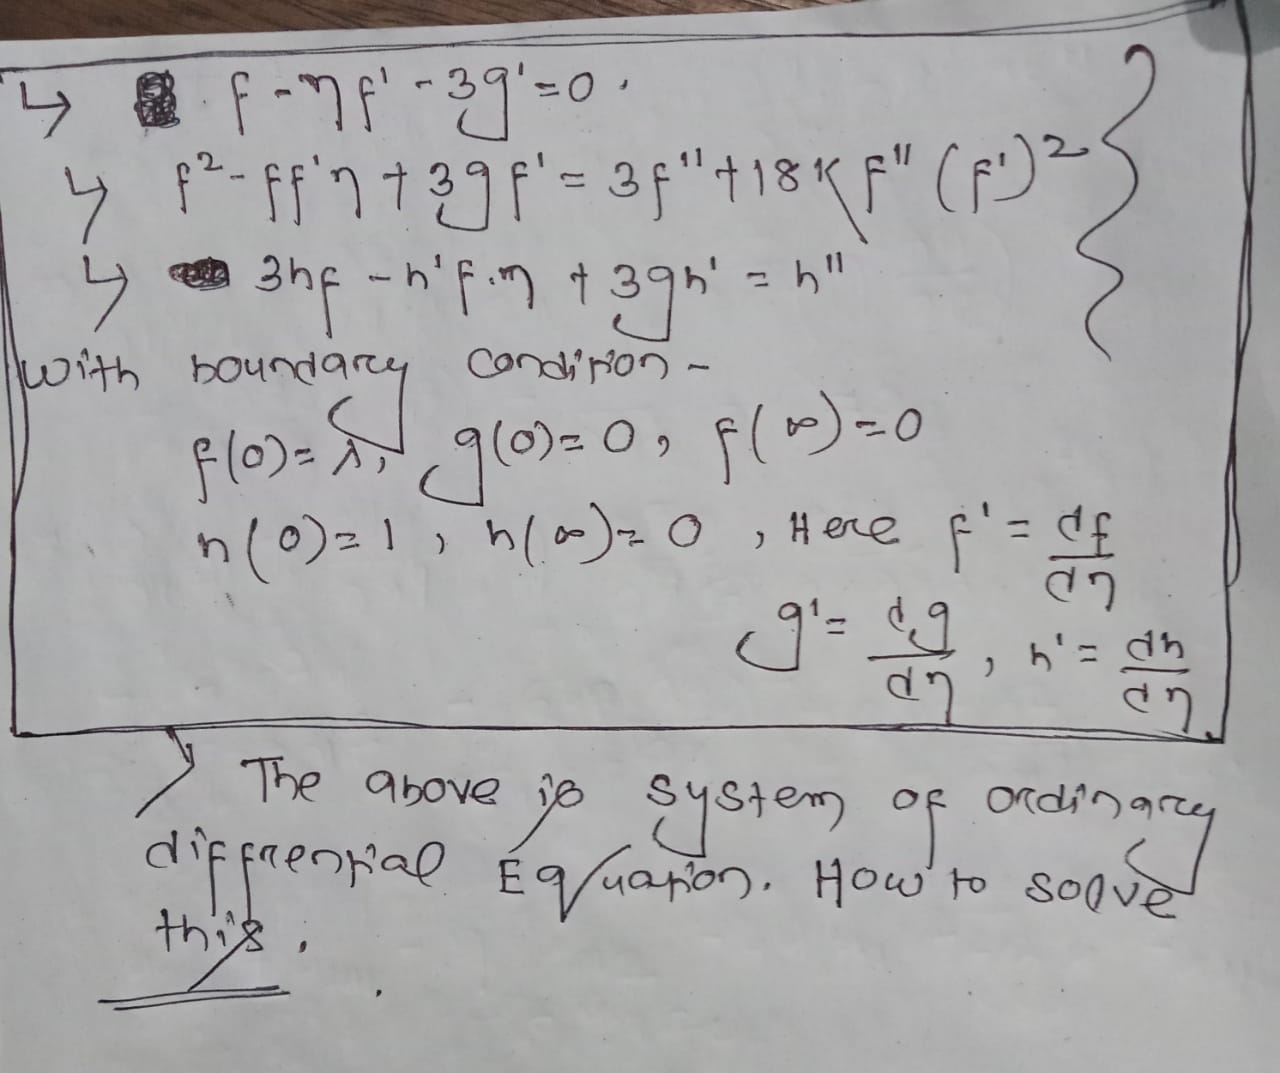 ↳ f - ηf' - 3g' = 0.
↳ f² - ff'η + 3gf' = 3f'' + 18Kf''(f')²
↳ 3hf - h'f.η + 3gh' = h''
With boundary condition -
f(0) = λ, g(0) = 0, f(∞) = 0
h(0) = 1, h(∞) = 0, Here f' = df/dη
g' = dg/dη, h' = dh/dη
The above is system of ordinary
diffrential Equation. How to solve
this.